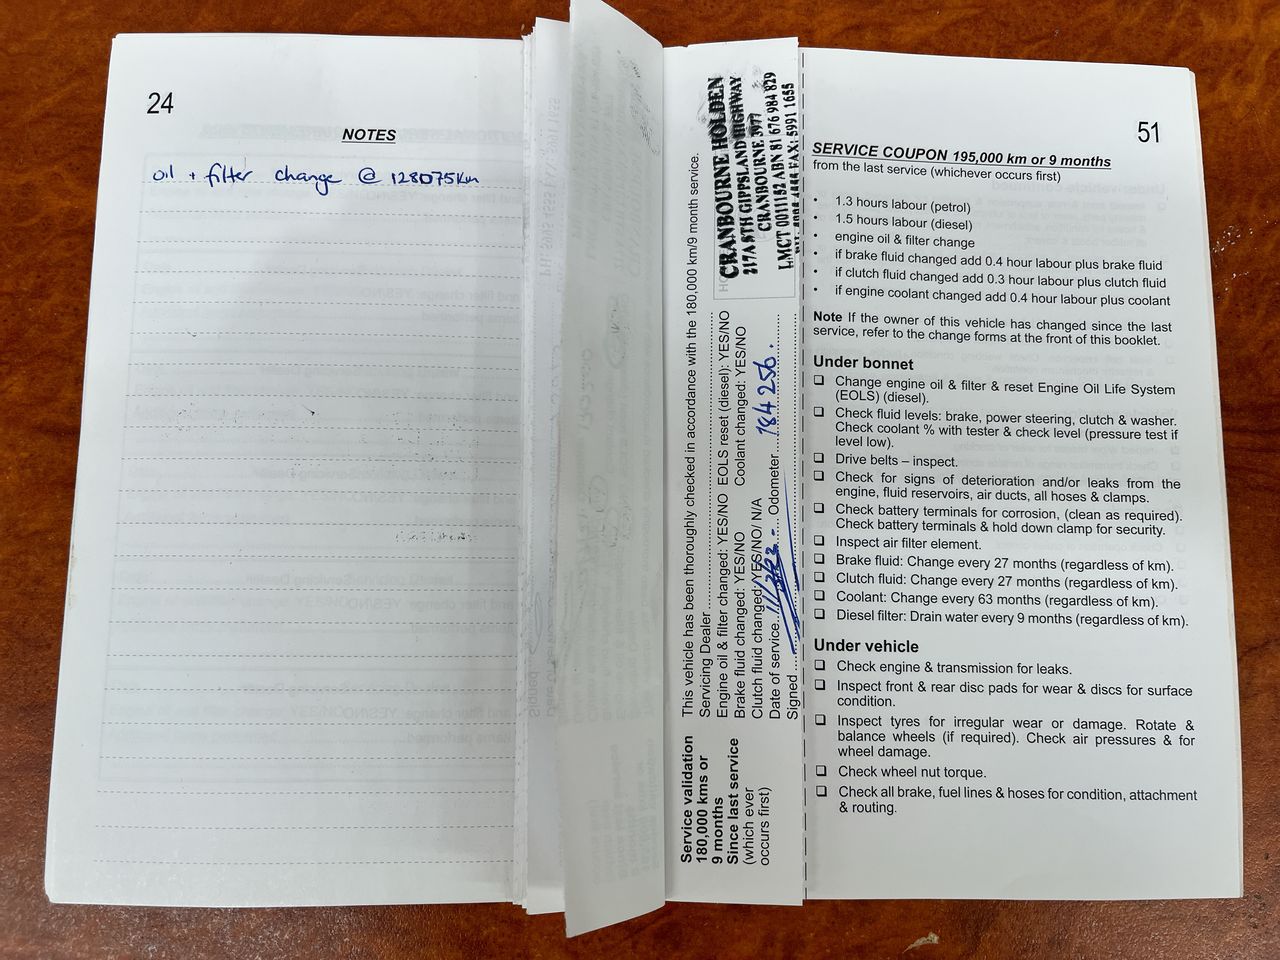 24
NOTES
oil + filter change @ 128075km
Service validation
180,000 kms or
9 months
Since last service
(which ever
occurs first)
This vehicle has been thoroughly checked in accordance with the 180,000 km/9 month service.
Servicing Dealer
Engine oil & filter changed: YES/NO EOLS reset (diesel): YES/NO
Brake fluid changed: YES/NO Coolant changed: YES/NO
Clutch fluid changed: YES/NO/ N/A
Date of service Odometer 184 256
Signed
CRANBOURNE HOLDEN
217A STH GIPPSLAND HIGHWAY
CRANBOURNE 3977
LMCT 0011152 ABN 81 676 984 829
FAX: 5991 1655
51
SERVICE COUPON 195,000 km or 9 months
from the last service (whichever occurs first)
• 1.3 hours labour (petrol)
• 1.5 hours labour (diesel)
• engine oil & filter change
• if brake fluid changed add 0.4 hour labour plus brake fluid
• if clutch fluid changed add 0.3 hour labour plus clutch fluid
• if engine coolant changed add 0.4 hour labour plus coolant
Note If the owner of this vehicle has changed since the last
service, refer to the change forms at the front of this booklet.
Under bonnet
❑ Change engine oil & filter & reset Engine Oil Life System
(EOLS) (diesel).
❑ Check fluid levels: brake, power steering, clutch & washer.
Check coolant % with tester & check level (pressure test if
level low).
❑ Drive belts – inspect.
❑ Check for signs of deterioration and/or leaks from the
engine, fluid reservoirs, air ducts, all hoses & clamps.
❑ Check battery terminals for corrosion, (clean as required).
Check battery terminals & hold down clamp for security.
❑ Inspect air filter element.
❑ Brake fluid: Change every 27 months (regardless of km).
❑ Clutch fluid: Change every 27 months (regardless of km).
❑ Coolant: Change every 63 months (regardless of km).
❑ Diesel filter: Drain water every 9 months (regardless of km).
Under vehicle
❑ Check engine & transmission for leaks.
❑ Inspect front & rear disc pads for wear & discs for surface
condition.
❑ Inspect tyres for irregular wear or damage. Rotate &
balance wheels (if required). Check air pressures & for
wheel damage.
❑ Check wheel nut torque.
❑ Check all brake, fuel lines & hoses for condition, attachment
& routing.